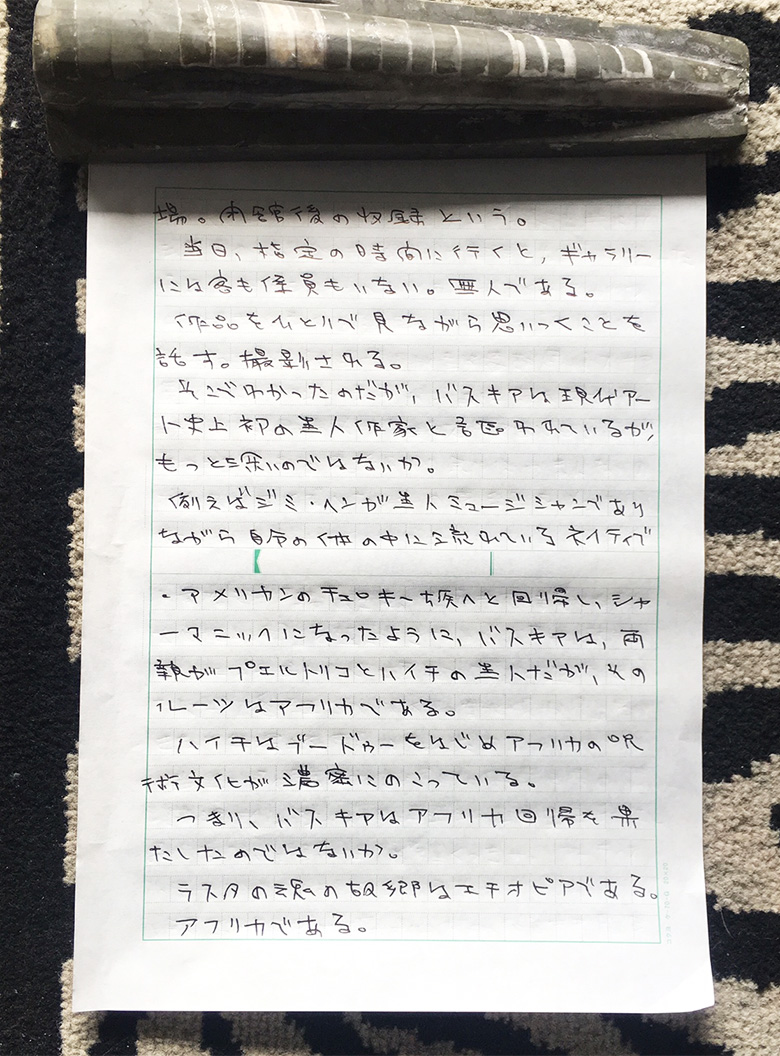 場。閉館後の収録という。
当日、指定の時間に行くと、ギャラリー
には客も係員もいない。無人である。
作品をひとりで見ながら思いつくことを
話す。撮影される。
そこでわかったのだが、バスキアは現代アー
ト史上初の黒人作家と言われているが、
もっと深いのではないか。
例えばジミ・ヘンが黒人ミュージシャンであり
ながら自分の体の中に流れているネイティブ
・アメリカンのチェロキー族へと回帰し、シャ
ーマニックになったように、バスキアは、両
親がプエルトリコとハイチの黒人だが、その
ルーツはアフリカである。
ハイチはブードゥーをはじめアフリカの呪
術文化が濃密にのこっている。
つまり、バスキアはアフリカ回帰を果
たしたのではないか。
ラスタの魂の故郷はエチオピアである。
アフリカである。